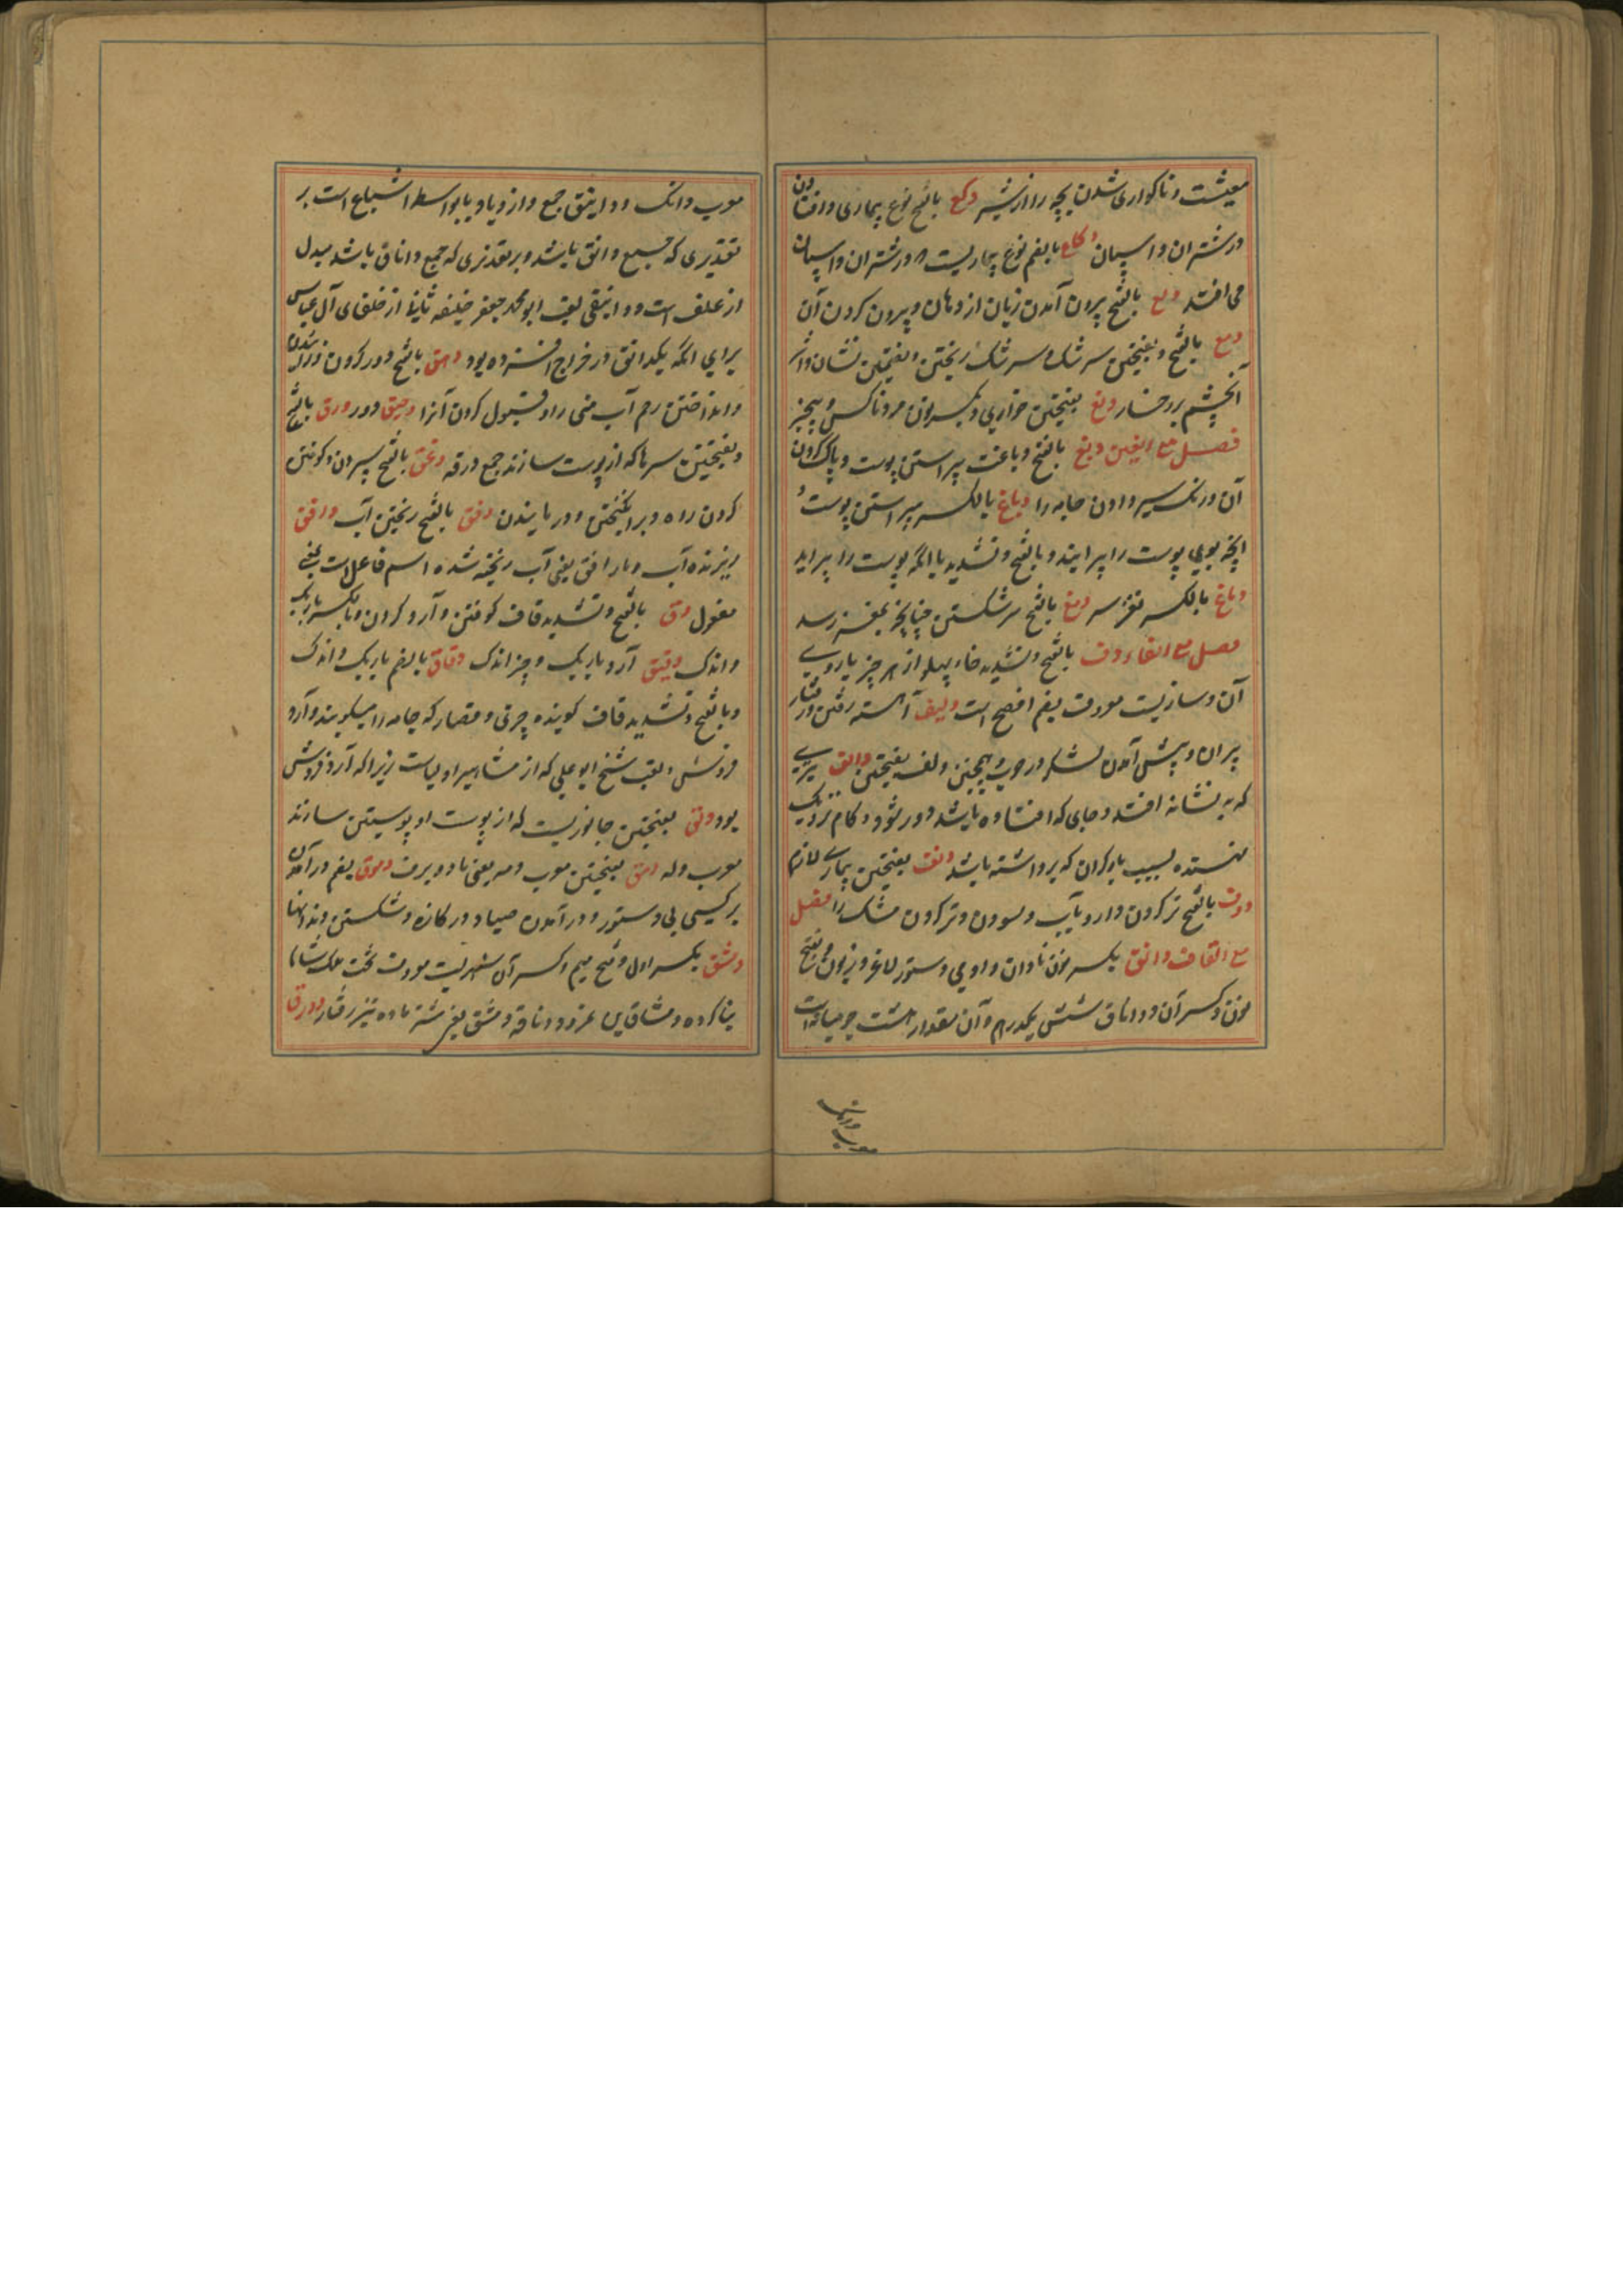 معیشت و ناکواری شدن بچه را از شیر دکع بالفتح نوع بیماری و افتادن
در شتران و اسپان دکاع بالضم نوع بیماریست که در شتران و اسپان
می افتد دلع بالفتح بیرون آمدن زبان از دهان و بیرون کردن آن
دمع بالفتح و بفتحتین سرشک و سرشک ریختن و بضمتین نشان و اثر
آبچشم بر رخسار دنع بفتحتین خواری و بکسر نون مرد ناکس و بیچیز
فصل مع الغین دبغ بالفتح و باغت پیراستن پوست و پاک کردن
آن و رنک سیر دادن جامه را دباغ بالکسر پیراستن پوست و
آنچه بوی پوست را پیرایند و بالفتح و تشدید با آنکه پوست را پیراید
دماغ بالکسر مغز سر دمغ بالفتح سر شکستن چنانچه بمغز رسد
فصل مع الفاء دف بالفتح و تشدید فاء پهلو از هر چیز یا روی
آن و سازیست معروف بضم افصح است دلیف آهسته رفتن و رفتار
پیران و پیش آمدن لشکر در حرب همچنین دلف بفتحتین دالف تیری
که به نشانه افتد و جای که افتاده باشد دور شود و کام نزدیک
نهنده بسبب بار کران که برداشته باشد دنف بفتحتین بیماری لازم
دوف بالفتح تر کردن دارو بآب و سودن و تر کردن مشک را فصل
مع القاف دانق بکسر نون نادان و ستور لاغر و زبون و بفتح
نون و کسر آن و داناق شش یکدرم و آن مقدار هشت جو میانه است
معرب دانک
معرب دانک و دوانیق جمع و ازدیاد یا بواسطه اشباع است بر
تقدیری که جمع دانق باشد و بر تقدیری که جمع داناق باشد مبدل
از الف است و دوانیقی لقب ابو محمد جعفر خلیفه ثانی از خلفای آل عباس
برای آنکه یکدانق در خراج افزوده بود دحق بالفتح دور کردن و زائیدن
و انداختن رحم آب منی را و قبول کردن آنرا دحیق دور درق بالفتح
و بفتحتین سپرها که از پوست سازند جمع درقه دعق بالفتح سپردن و کوفتن
کردن راه و برانکیختن و دربایندن دفق بالفتح ریختن آب دافق
ریزنده آب و ماء دافق یعنی آب ریخته شده اسم فاعل است بمعنی
مفعول دق بالفتح و تشدید قاف کوفتن و آرد کردن و بالکسر باریک
و اندک دقیق آرد باریک و چیز اندک دقاق بالضم باریک و اندک
و بالفتح و تشدید قاف کوبنده چیزی و قصار که جامه را میکوبند و آرد
فروش و لقب شیخ ابو علی که از مشاهیر اولیاست زیرا که آرد فروش
بود دلق بفتحتین جانوریست که از پوست او پوستین سازند
معرب دله دمق بفتحتین معرب دمه یعنی باد و برف دموق بضم در آمدن
بر کسی بی دستور و در آمدن صیاد در کازه و شکستن دندانها
دمشق بکسر اول و فتح میم و کسر آن شهریست معروف تخت ملک شام
بنا کرده دمشاق بن نمرود و ناقه دمشق یعنی شتر ماده تیز رفتار دورق